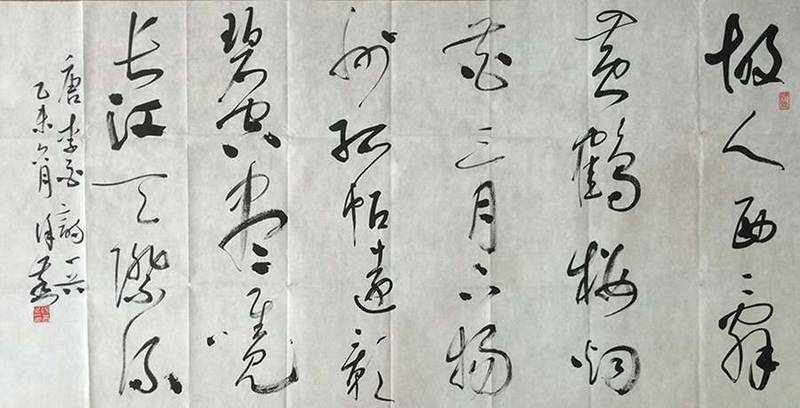 故人西辞
黄鶴楼烟
花三月下揚
州孤帆遠影
碧空尽唯見
长江天際流
唐李白詩一首
乙未六月